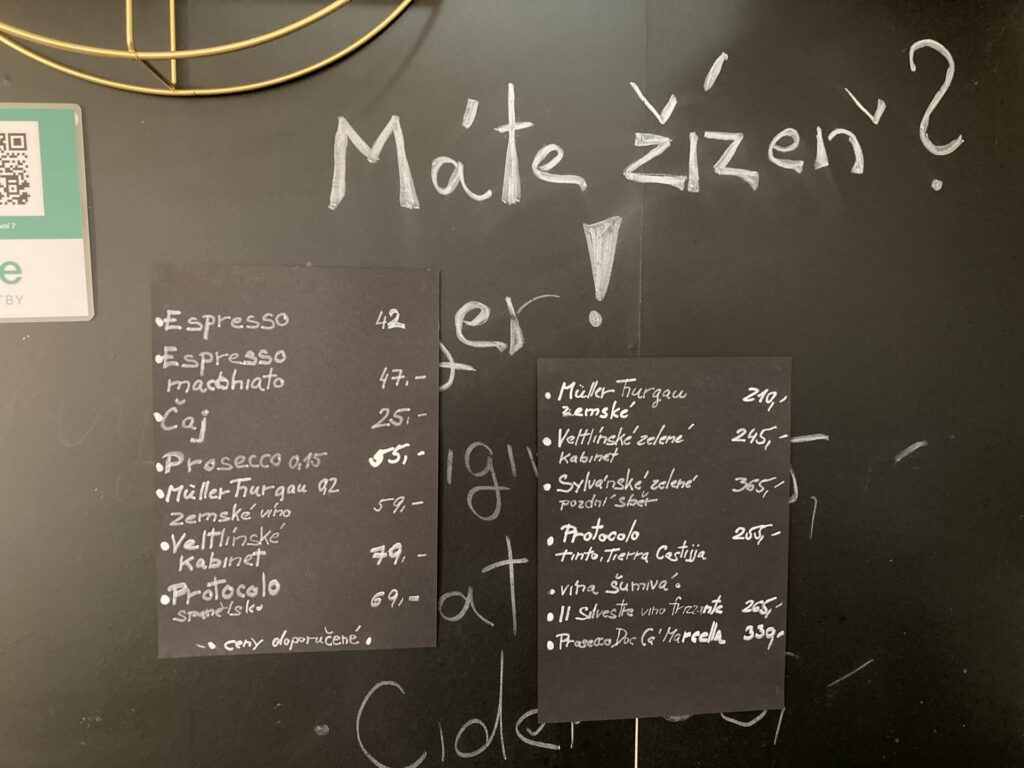 Máte žízeň?
!
er
vní 7
e
TBY
• Espresso 42
• Espresso
macchiato 47.-
• Čaj 25,-
• Prosecco 0,15 55,-
• Müller Thurgau 0,2
zemské víno 59,-
• Veltlínské
kabinet 79,-
• Protocolo
španělsko 69,-
• ceny doporučené •
• Müller Thurgau 219,-
zemské
• Veltlínské zelené 245,-
kabinet
• Sylvánské zelené 365,-
pozdní sběr
• Protocolo 255,-
tinto, Tierra Castilja
• vína šumivá:
• Il Silvestre vino frezante 265,-
• Prosecco Doc Ca' Marcella 339,-
igin
at
• Cider